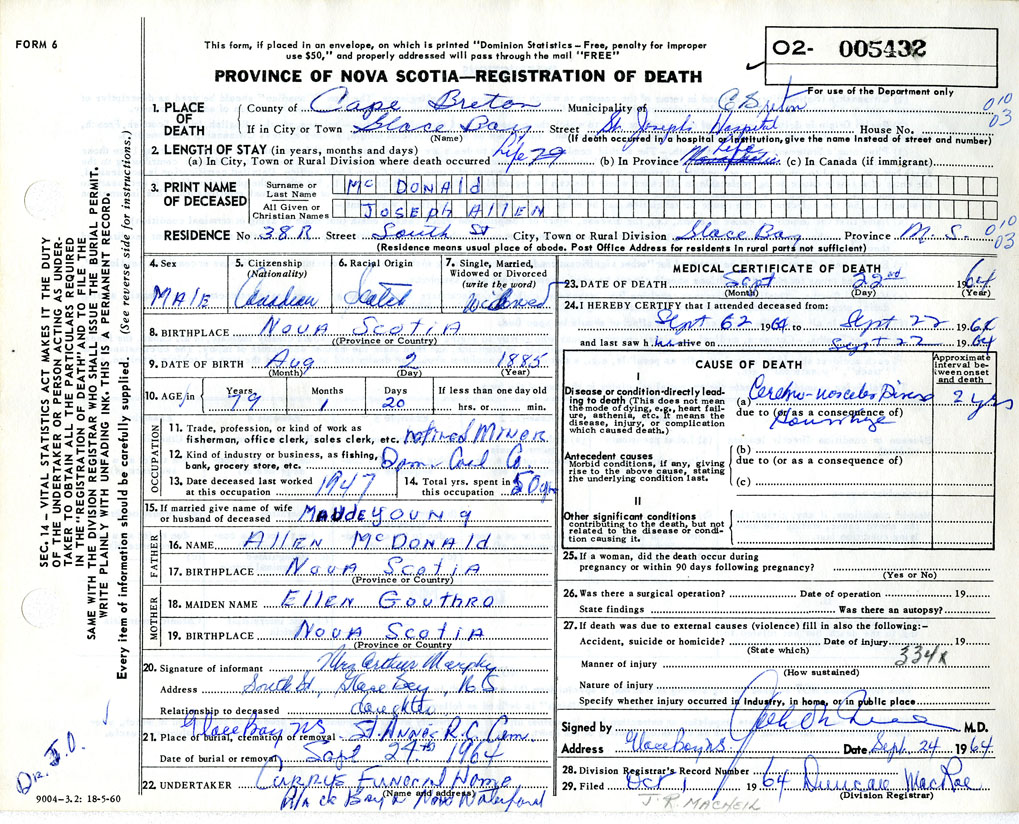 FORM 6
This form, if placed in an envelope, on which is printed "Dominion Statistics – Free, penalty for improper
use $50," and properly addressed will pass through the mail "FREE"
O2- 005432
PROVINCE OF NOVA SCOTIA—REGISTRATION OF DEATH
For use of the Department only
1. PLACE OF DEATH
County of Cape Breton Municipality of C Breton
010
03
If in City or Town Glace Bay Street St. Joseph's Hospital House No.
(Name) (If death occurred in a hospital or institution, give the name instead of street and number)
2. LENGTH OF STAY (in years, months and days)
(a) In City, Town or Rural Division where death occurred Life 79 (b) In Province Life (c) In Canada (if immigrant)
3. PRINT NAME OF DECEASED
Surname or Last Name McDONAld
All Given or Christian Names JOSEPH AllEN
RESIDENCE No 38R Street South St City, Town or Rural Division Glace Bay Province N. S.
010
03
(Residence means usual place of abode. Post Office Address for residents in rural parts not sufficient)
4. Sex
MALE
5. Citizenship
(Nationality)
Canadian
6. Racial Origin
Scotch
7. Single, Married, Widowed or Divorced
(write the word)
Widowed
8. BIRTHPLACE NOVA SCOTIA
(Province or Country)
9. DATE OF BIRTH Aug 2 1885
(Month) (Day) (Year)
10. AGE Years 79 Months 1 Days 20 If less than one day old hrs. or min.
OCCUPATION
11. Trade, profession, or kind of work as
fisherman, office clerk, sales clerk, etc. retired MINOR
12. Kind of industry or business, as fishing,
bank, grocery store, etc. Dom. Coal Co
13. Date deceased last worked
at this occupation 1947
14. Total yrs. spent in
this occupation 50 yrs
15. If married give name of wife
or husband of deceased MAUDE YOUNG
FATHER
16. NAME Allen McDONAld
17. BIRTHPLACE NOVA SCOTIA
(Province or Country)
MOTHER
18. MAIDEN NAME Ellen Gouthro
19. BIRTHPLACE NOVA SCOTIA
(Province or Country
20. Signature of informant Mrs Arthur Murphy
Address South St, Glace Bay, N S
Relationship to deceased daughter
Glace Bay NS
21. Place of burial, cremation or removal St. Annes R.C. Cem
Date of burial or removal Sept 24th 1964
22. UNDERTAKER Currys Funeral Home
(Name and address)
Glace Bay & New Waterford
MEDICAL CERTIFICATE OF DEATH
23. DATE OF DEATH Sept 22nd 1964
(Month) (Day) (Year)
24. I HEREBY CERTIFY that I attended deceased from:
Sept 1964 to Sept 22 1964
and last saw h im alive on Sept 22 1964
CAUSE OF DEATH
Approximate interval between onset and death
I
Disease or condition directly leading to death (This does not mean the mode of dying, e.g., heart failure, asthenia, etc. It means the disease, injury, or complication which caused death.)
(a) 2 yrs
due to (or as a consequence of)
Antecedent causes
Morbid conditions, if any, giving rise to the above cause, stating the underlying condition last.
(b)
due to (or as a consequence of)
(c)
II
Other significant conditions
contributing to the death, but not related to the disease or condition causing it.
25. If a woman, did the death occur during
pregnancy or within 90 days following pregnancy?
(Yes or No)
26. Was there a surgical operation? Date of operation 19
State findings Was there an autopsy?
27. If death was due to external causes (violence) fill in also the following:-
Accident, suicide or homicide? Date of injury 19
(State which)
334x
Manner of injury
(How sustained)
Nature of injury
Specify whether injury occurred in industry, in home, or in public place
Signed by M.D.
Address Glace Bay NS. Date Sept. 24 1964
28. Division Registrar's Record Number
29. Filed Oct 1 1964 Duncan MacRae
(Division Registrar)
J. R. MACNEIL
SEC. 14 – VITAL STATISTICS ACT MAKES IT THE DUTY
OF THE UNDERTAKER OR PERSON ACTING AS UNDER-
TAKER TO OBTAIN ALL THE PARTICULARS REQUIRED
IN THE "REGISTRATION OF DEATH" AND TO FILE THE
SAME WITH THE DIVISION REGISTRAR WHO SHALL ISSUE THE BURIAL PERMIT.
WRITE PLAINLY WITH UNFADING INK. THIS IS A PERMANENT RECORD.
Every item of information should be carefully supplied. (See reverse side for instructions.)
9004–3.2: 18-5-60